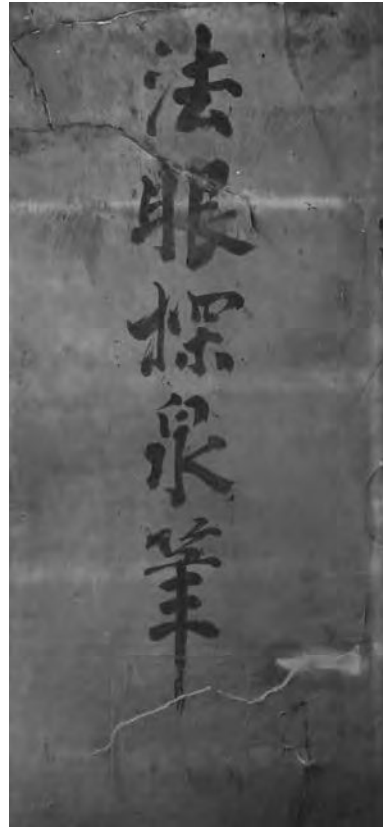 法眼探泉筆